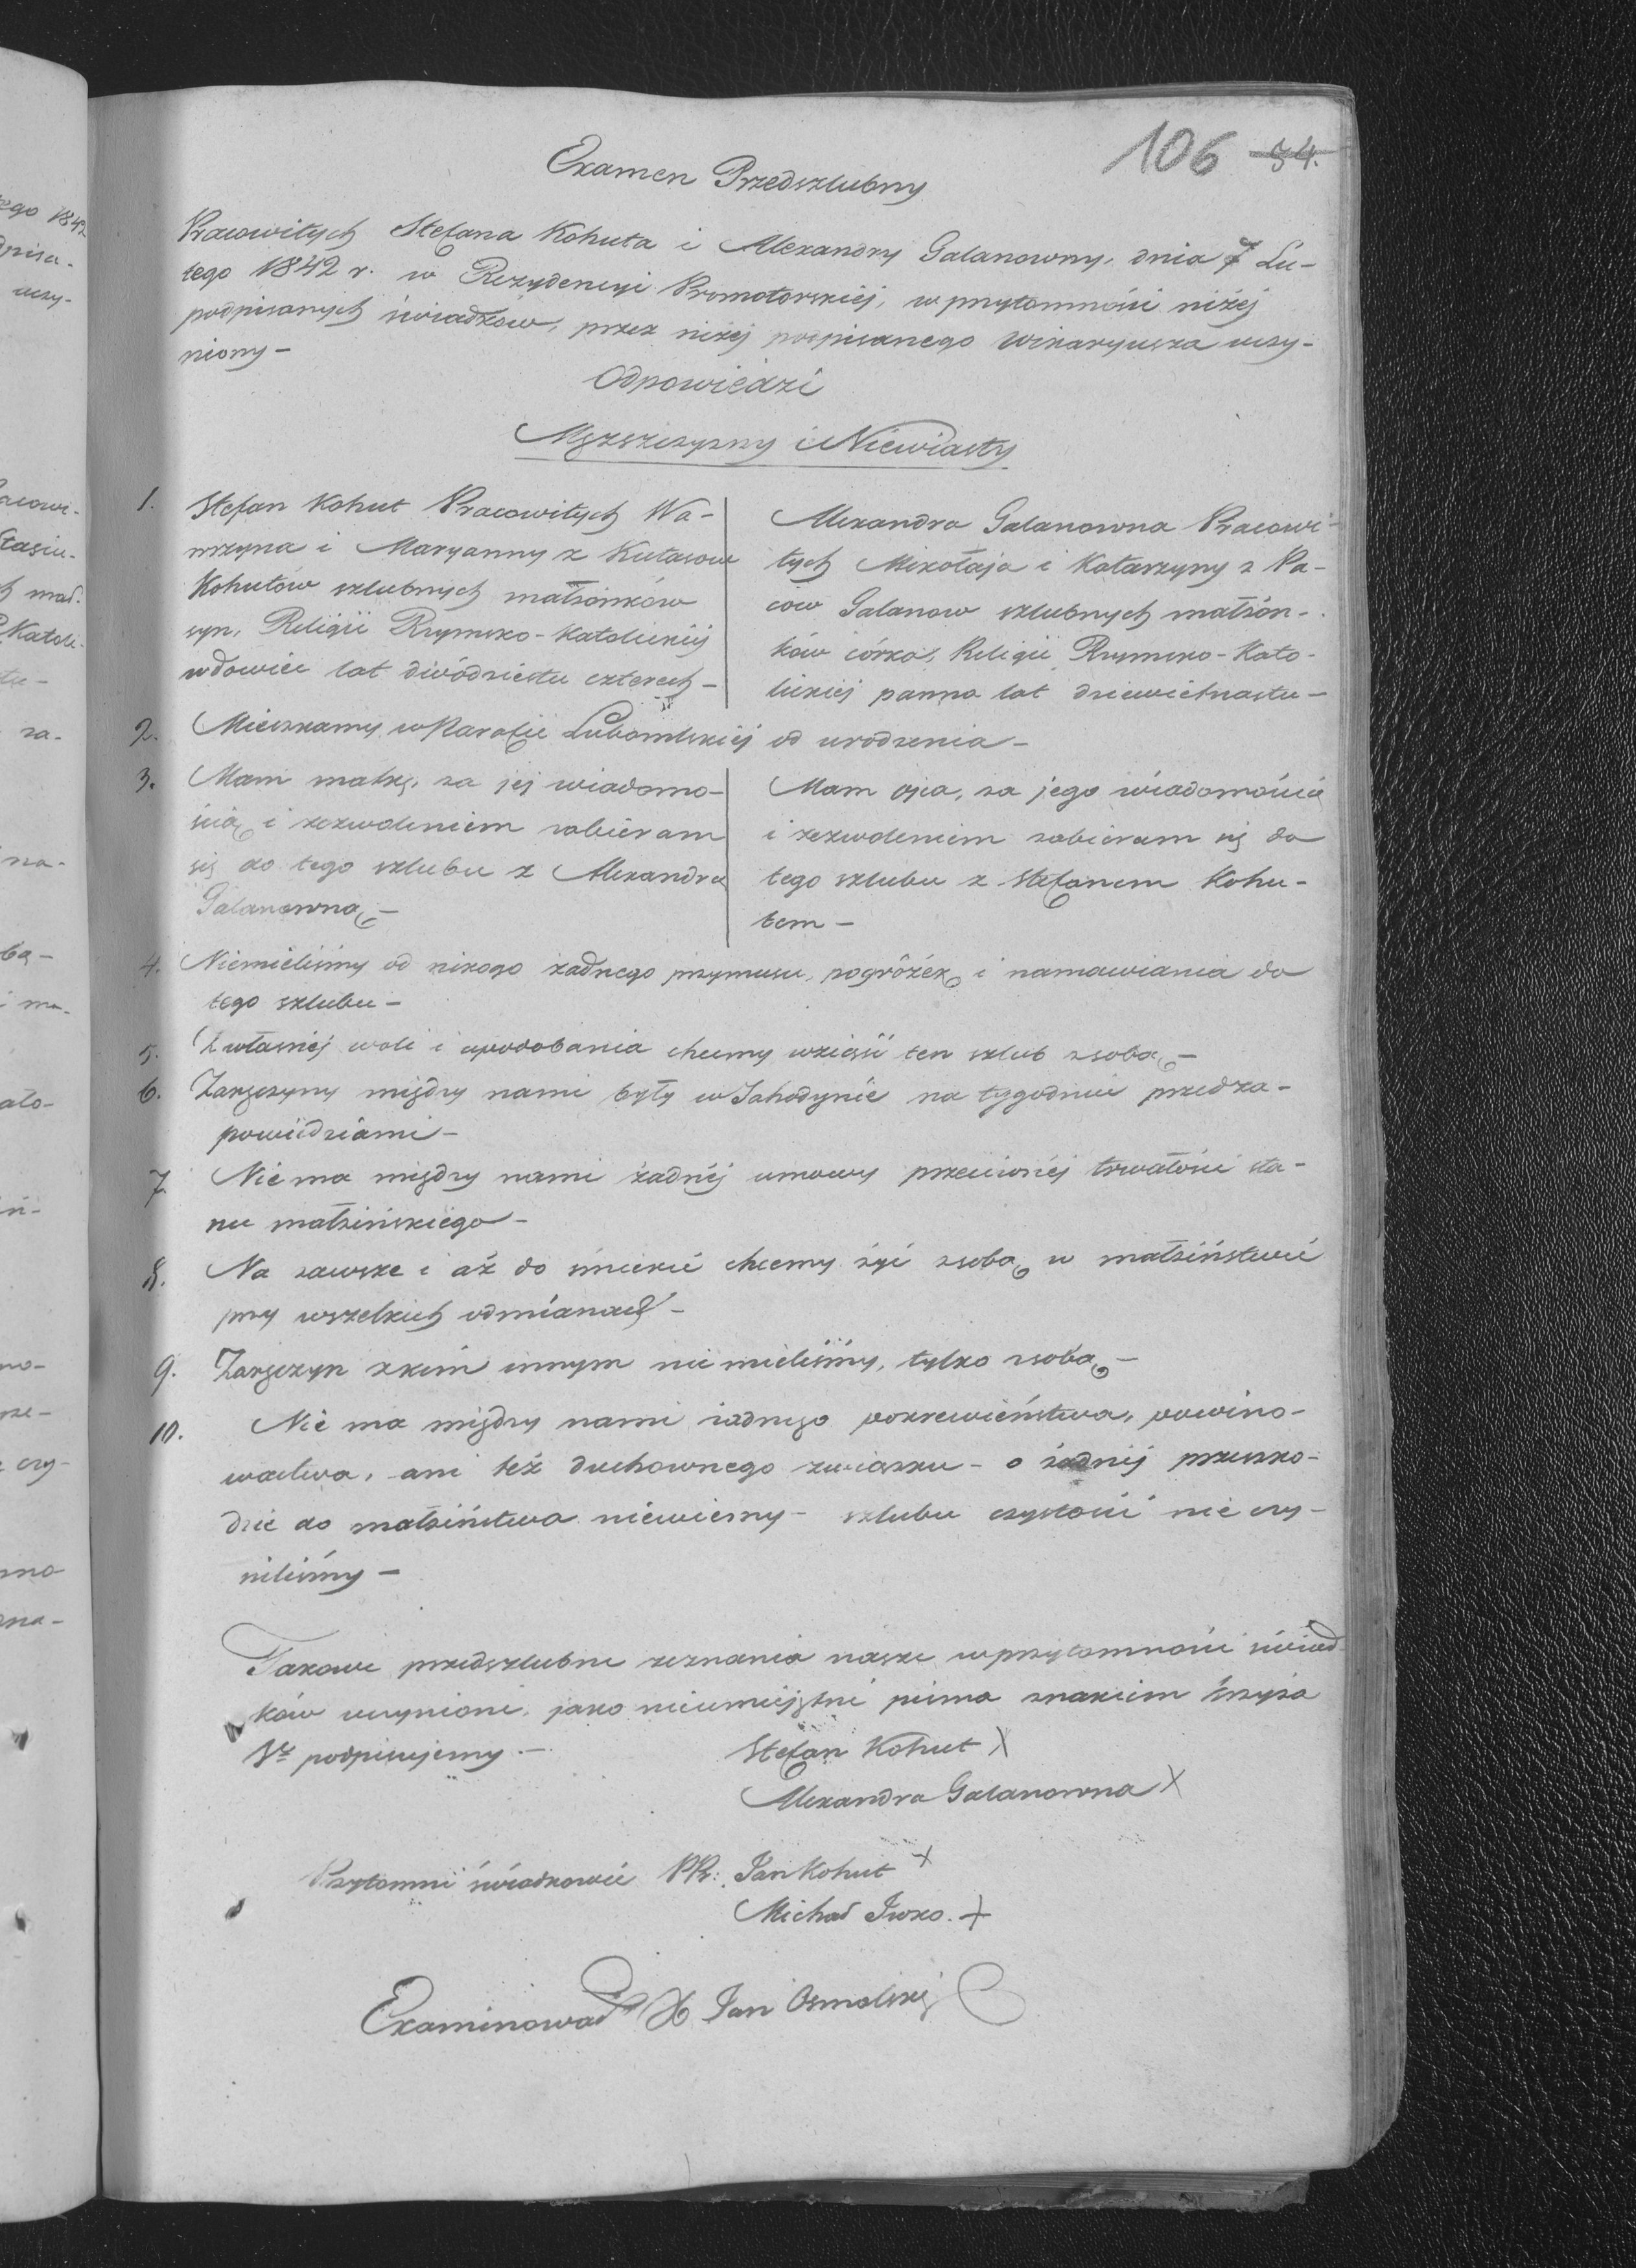 106 54.
Examen Przedszlubny
Pracowitych Stefana Kohuta i Alexandry Galanowny, dnia 7 Lu-
tego 1842 r. w Rezydencyi Promotorskiéj, w przytomności niżéj
podpisanych świadków, przez niżéj podpisanego Wikaryusza uczy-
niony -
Odpowiedzi
Męzszczyzny i Niewiasty
1. Stefan Kohut Pracowitych Wa-
wrzyna i Maryanny z Kutasow
Kohutów szlubnych małżonków
syn, Religii Rzymsko-Katolickiéj
wdowiec lat dwódziestu czterech -
Alexandra Galanowna Pracowi-
tych Mikołaja i Katarzyny z Pa-
ców Galanow szlubnych małżon-
ków córka, Religii Rzymsko-Kato-
lickiéj panna lat dziewietnastu -
2. Mieszkamy w Parafii Lubomlskiéj od urodzenia -
3. Mam matkę, za jéj wiadomo-
ścią i zezwoleniem zabieram
się do tego szlubu z Alexandrą
Galanowną -
Mam ojca, za jego wiadomością
i zezwoleniem zabieram się do
tego szlubu z Stefanem Kohu-
tem -
4. Niemieliśmy od nikogo żadnego przymusu, pogróżek i namawiania do
tego szlubu -
5. Z własnéj woli i upodobania chcemy wziąść ten szlub z sobą -
6. Zaręczyny między nami były w Jahodynie na tygodniu przed za-
powiedziami -
7. Nie ma między nami żadnéj umowy przeciwnéj trwałości sta-
nu małżeńskiego -
8. Na zawsze i aż do śmierci chcemy żyć z sobą w małżeństwie
przy wszelkich odmianach -
9. Zaręczyn z kim innym nie mieliśmy, tylko z sobą -
10. Nie ma między nami żadnego pokrewieństwa, powino-
wactwa, ani też duchownego związku - o żadnéj przeszko-
dzie do małżeństwa niewiemy - szlubu czystości nie czy-
niliśmy -
Takowe przedszlubne zeznania nasze w przytomności świad-
ków uczynione, jako nieumiejętni pisma znakiem krzyża
Sº podpisujemy. -
Stefan Kohut X
Alexandra Galanowna X
Przytomni świadkowie PP: Jan Kohut +
Michał Iwko. +
Examinował X Jan Osmolski